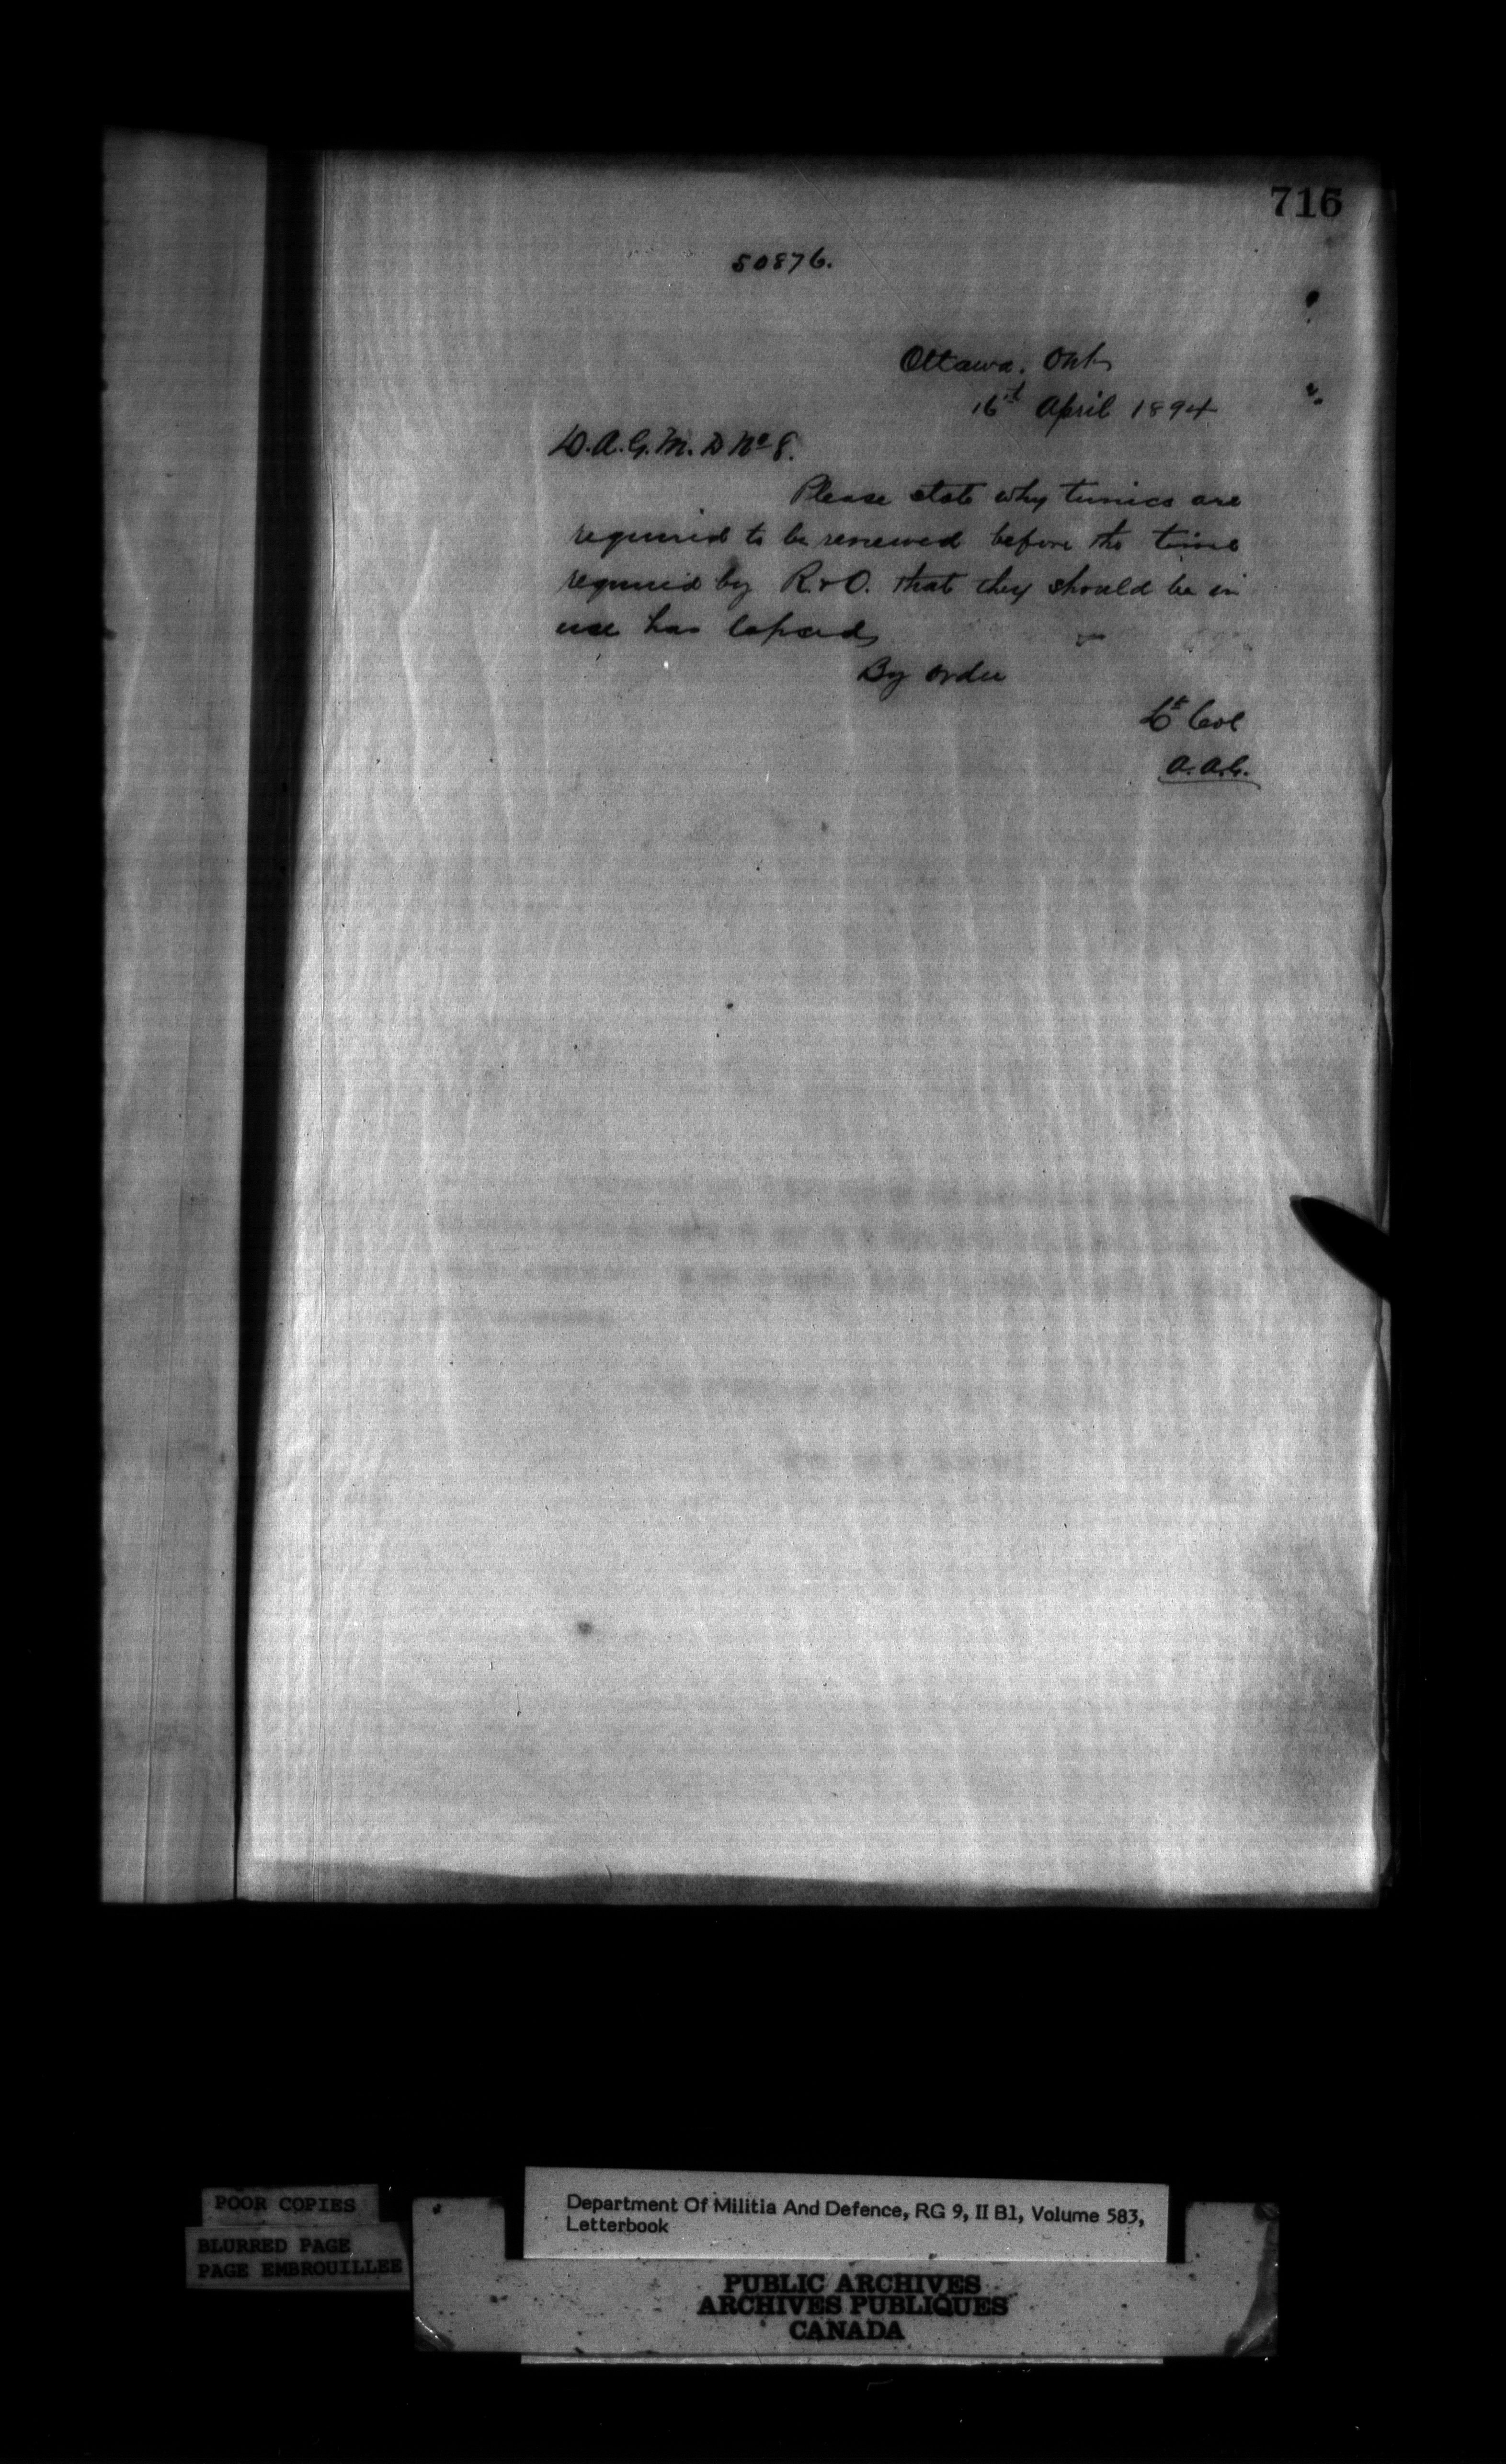 716
50876.
Ottawa. Ont
16th April 1894
D.A.G.M.D No 8.
Please state why tunics are
required to be renewed before the time
required by R. & O. that they should be in
use has lapsed
By order
Lt Col
A.A.G.
POOR COPIES
BLURRED PAGE
PAGE EMBROUILLEE
Department Of Militia And Defence, RG 9, II B1, Volume 583,
Letterbook
PUBLIC ARCHIVES
ARCHIVES PUBLIQUES
CANADA